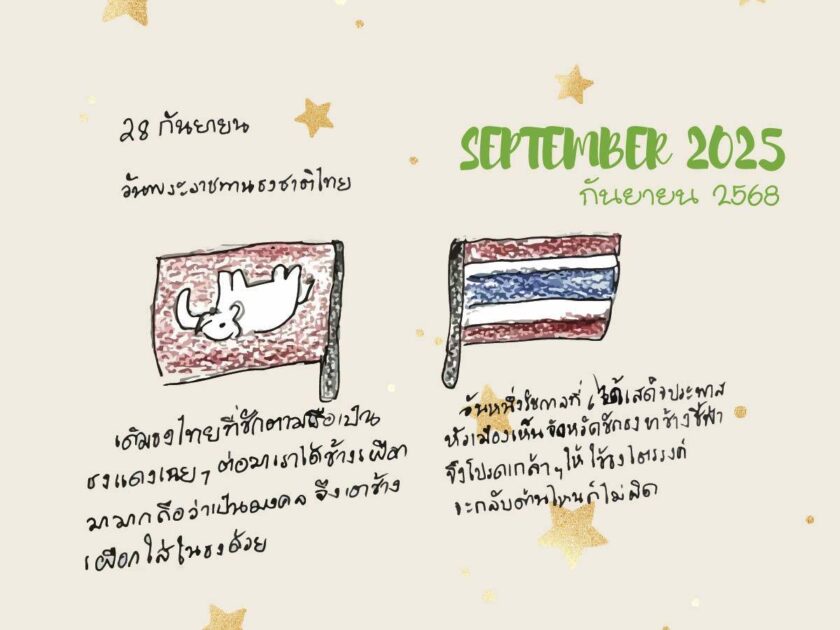 28 กันยายน
วันพระราชทานธงชาติไทย
SEPTEMBER 2025
กันยายน 2568
เดิมธงไทยที่ชักตามเรือเป็น
ธงแดงเฉยๆ ต่อมาเราได้ช้างเผือก
มามากถือว่าเป็นมงคล จึงเอาช้าง
เผือกใส่ในธงด้วย
วันหนึ่งรัชกาลที่ 6 ได้เสด็จประพาส
หัวเมืองเห็นจังหวัดชักธงช้างชี้ฟ้า
จึงโปรดเกล้าฯให้ใช้ธงไตรรงค์
จะกลับด้านไหนก็ไม่ผิด